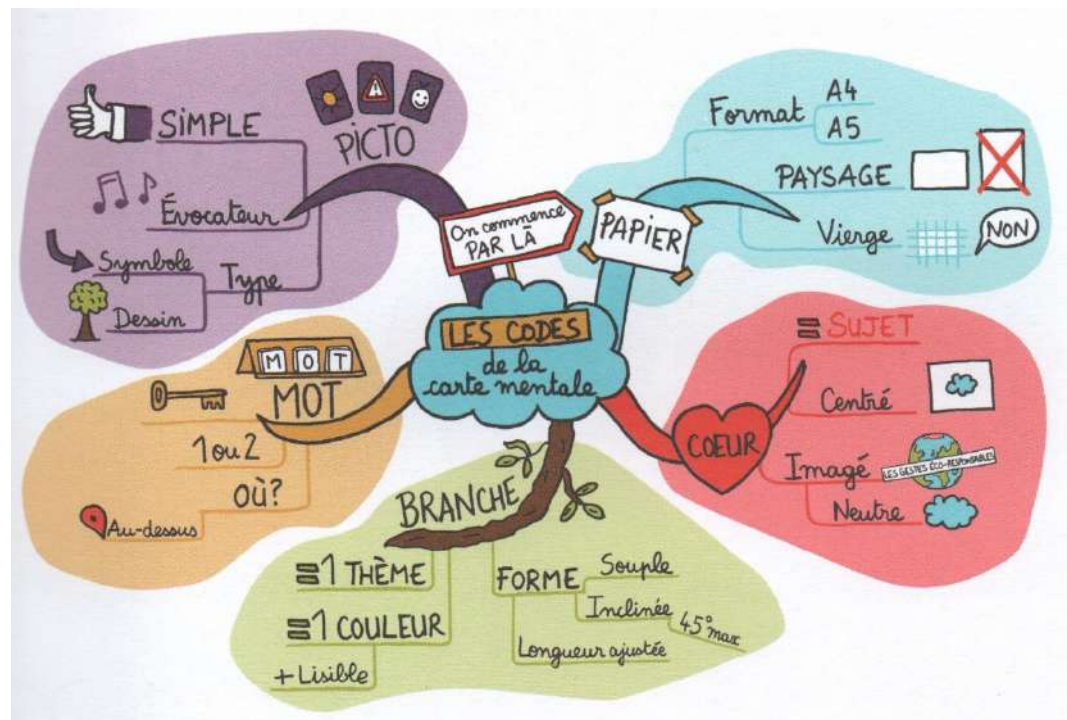 LES CODES
de la
carte mentale
On commence
PAR LÀ
PAPIER
Format
A4
A5
PAYSAGE
Vierge
NON
COEUR
= SUJET
Centré
Imagé
LES GESTES ÉCO-RESPONSABLES
Neutre
BRANCHE
=1 THÈME
=1 COULEUR
+ Lisible
FORME
Souple
Inclinée
45° max
Longueur ajustée
MOT
MOT
1 ou 2
OÙ?
Au-dessus
PICTO
SIMPLE
Évocateur
Type
Symbole
Dessin